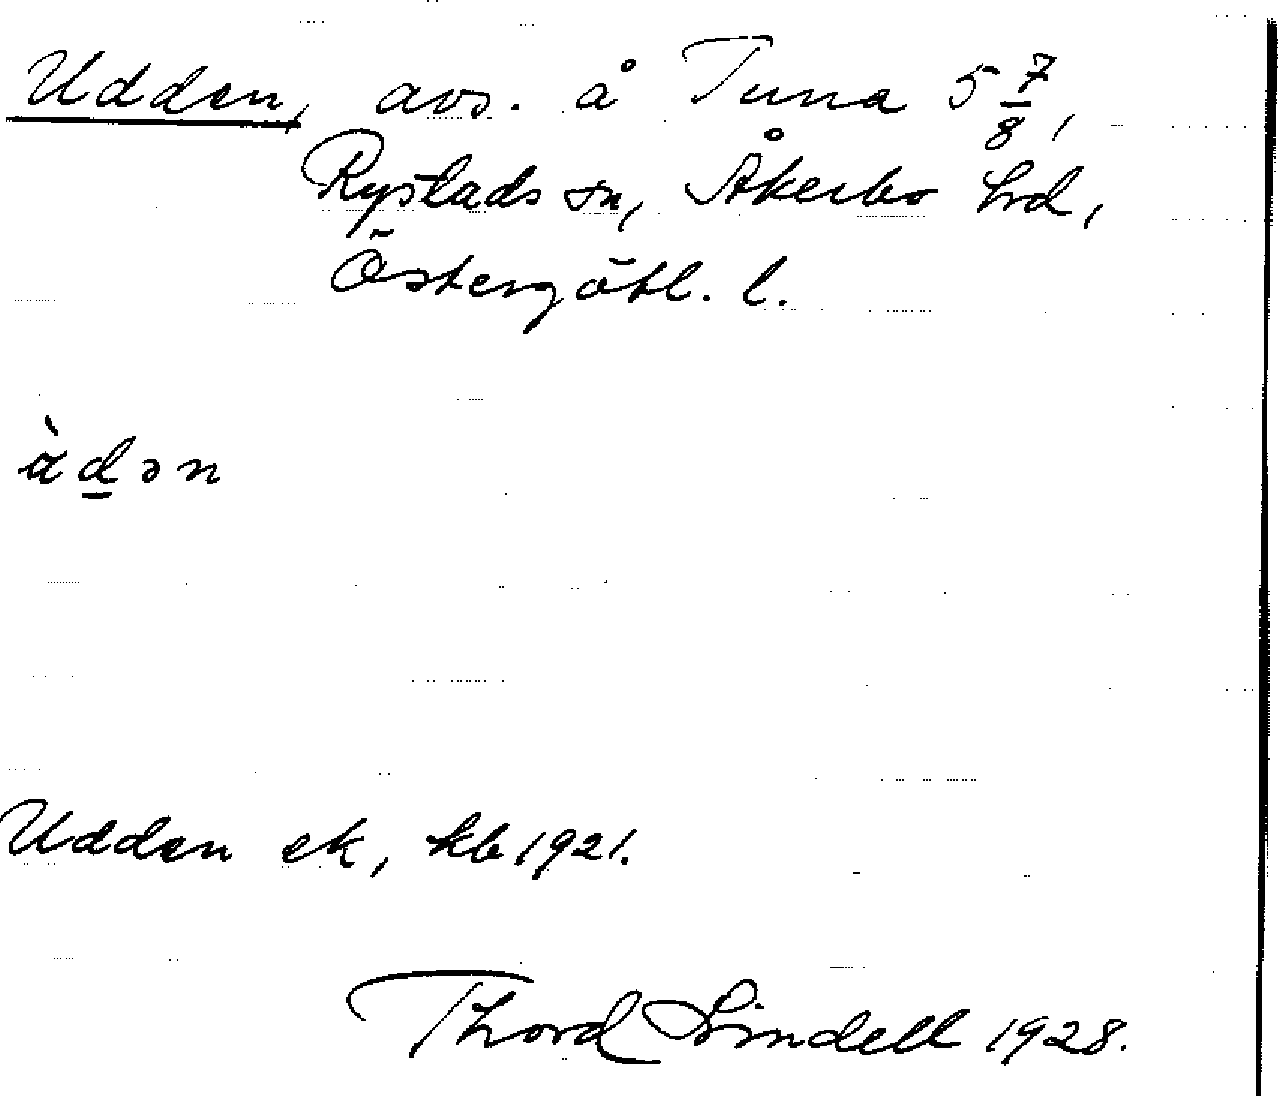 Udden, avs. å Tuna 5 7/8,
Rystads sn, Åkerbo hd,
Östergötl. l.
àdən
Udden ek, kb 1921.
Thord Lindell 1928.